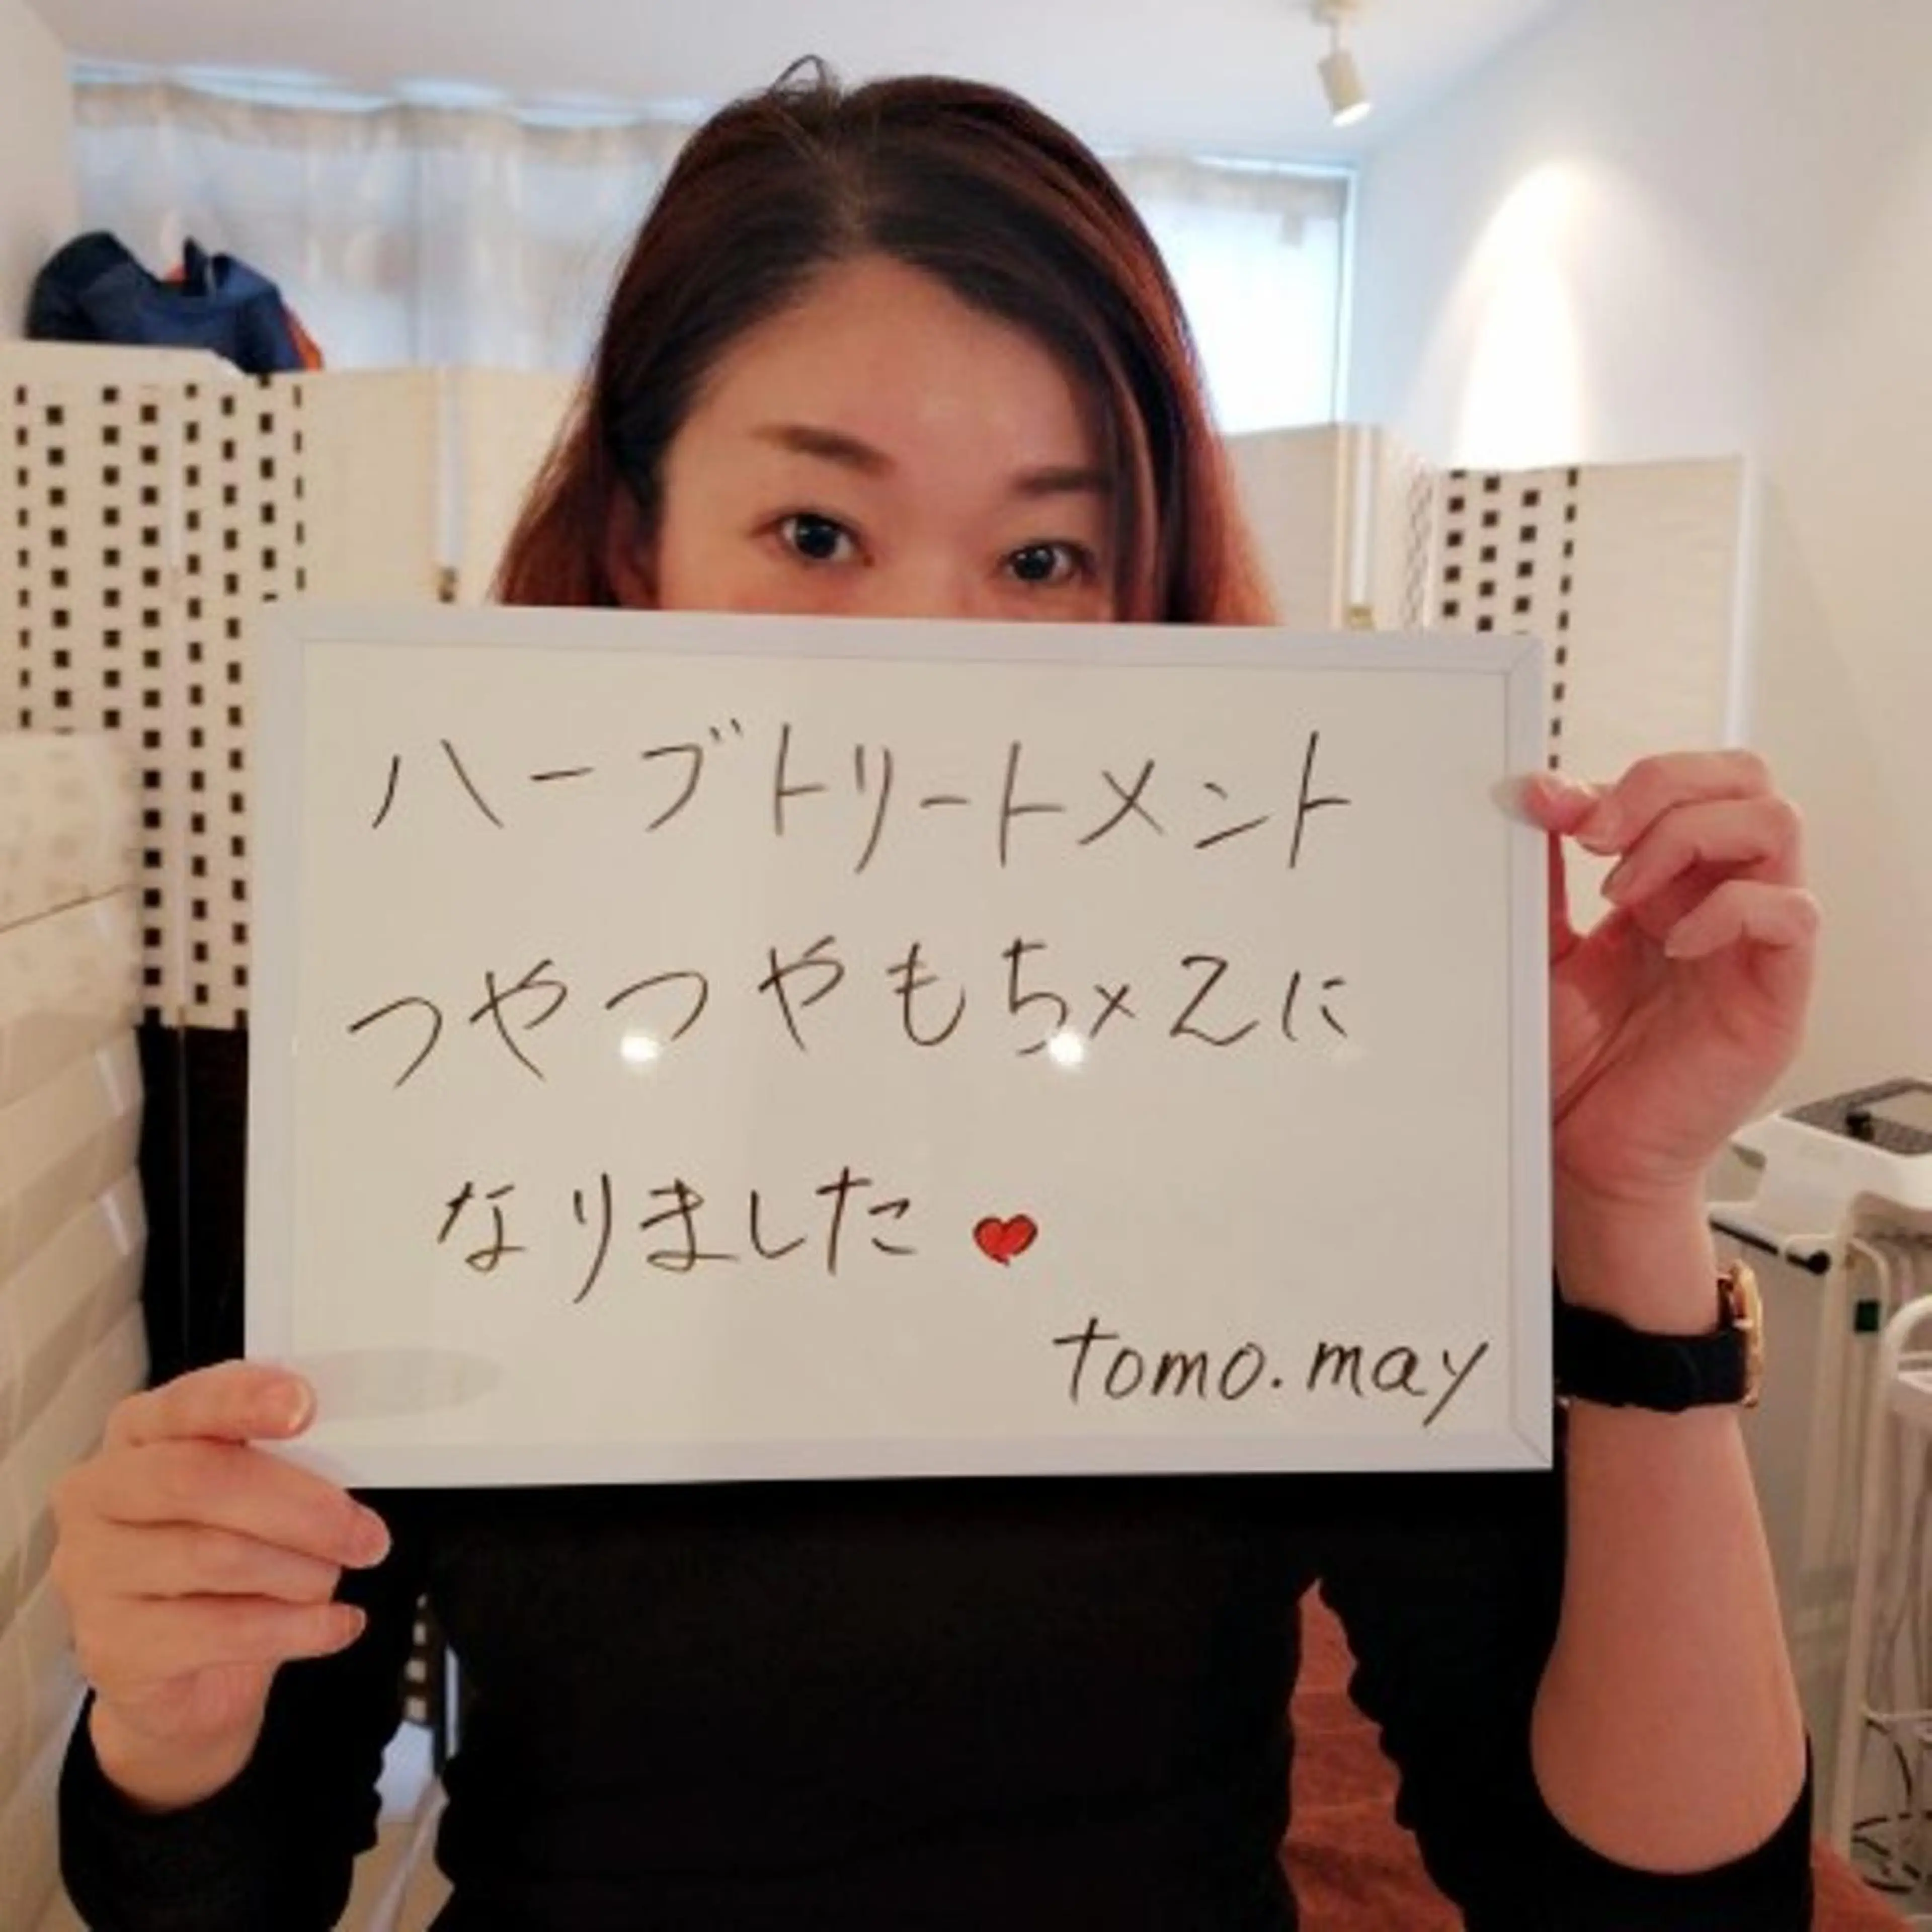 ハーブトリートメント
つやつやもち×2に
なりました♥
tomo.may